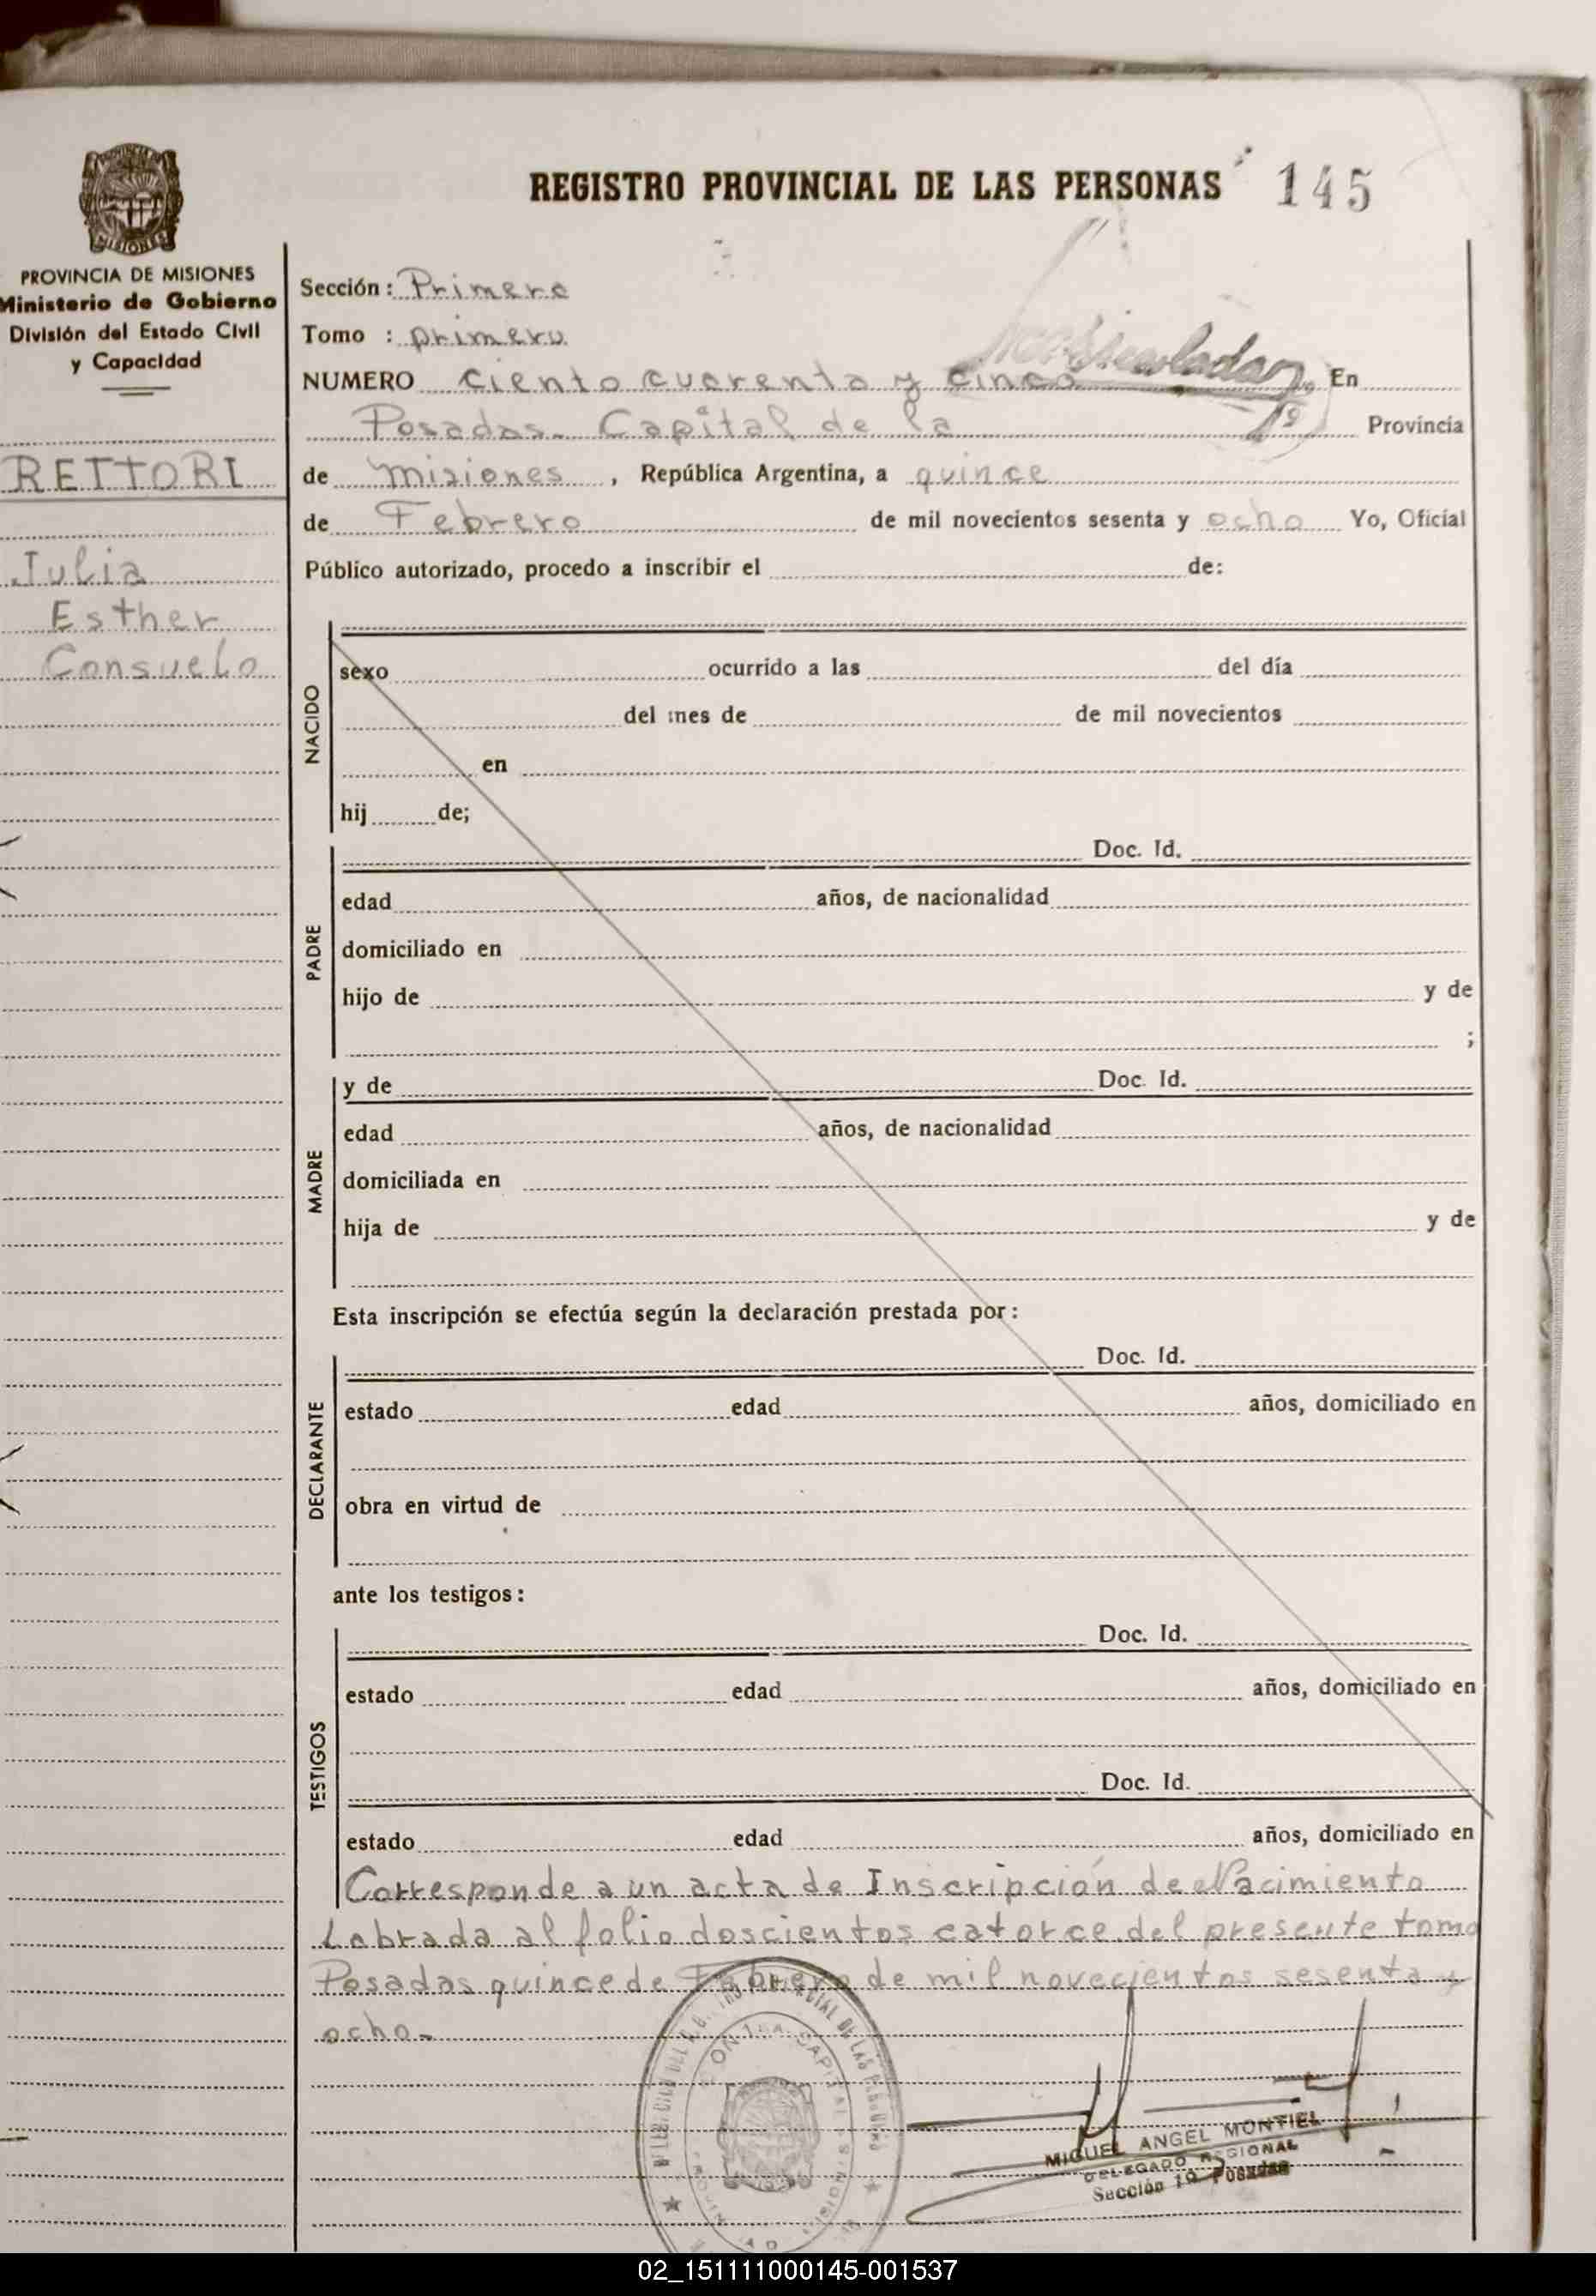 REGISTRO PROVINCIAL DE LAS PERSONAS 145
MISIONES
PROVINCIA DE MISIONES
Ministerio de Gobierno
División del Estado Civil
y Capacidad
RETTORI
Julia
Esther
Consuelo
Sección: Primera
Tomo : primero
NUMERO ciento cuarenta y cinco En
Posadas. Capital de la Provincia
de Misiones, República Argentina, a quince
de Febrero de mil novecientos sesenta y ocho Yo, Oficial
Público autorizado, procedo a inscribir el de:
NACIDO
sexo ocurrido a las del día
del mes de de mil novecientos
en
hij de;
PADRE
Doc. Id.
edad años, de nacionalidad
domiciliado en
hijo de y de
;
MADRE
y de Doc. Id.
edad años, de nacionalidad
domiciliada en
hija de y de
Esta inscripción se efectúa según la declaración prestada por:
DECLARANTE
Doc. Id.
estado edad años, domiciliado en
obra en virtud de
ante los testigos:
TESTIGOS
Doc. Id.
estado edad años, domiciliado en
Doc. Id.
estado edad años, domiciliado en
Corresponde a un acta de Inscripción de Nacimiento
Labrada al folio doscientos catorce del presente tomo
Posadas quince de Febrero de mil novecientos sesenta y
ocho.
MIGUEL ANGEL MONTIEL
DELEGADO REGIONAL
Sección 1º Posadas
02_151111000145-001537